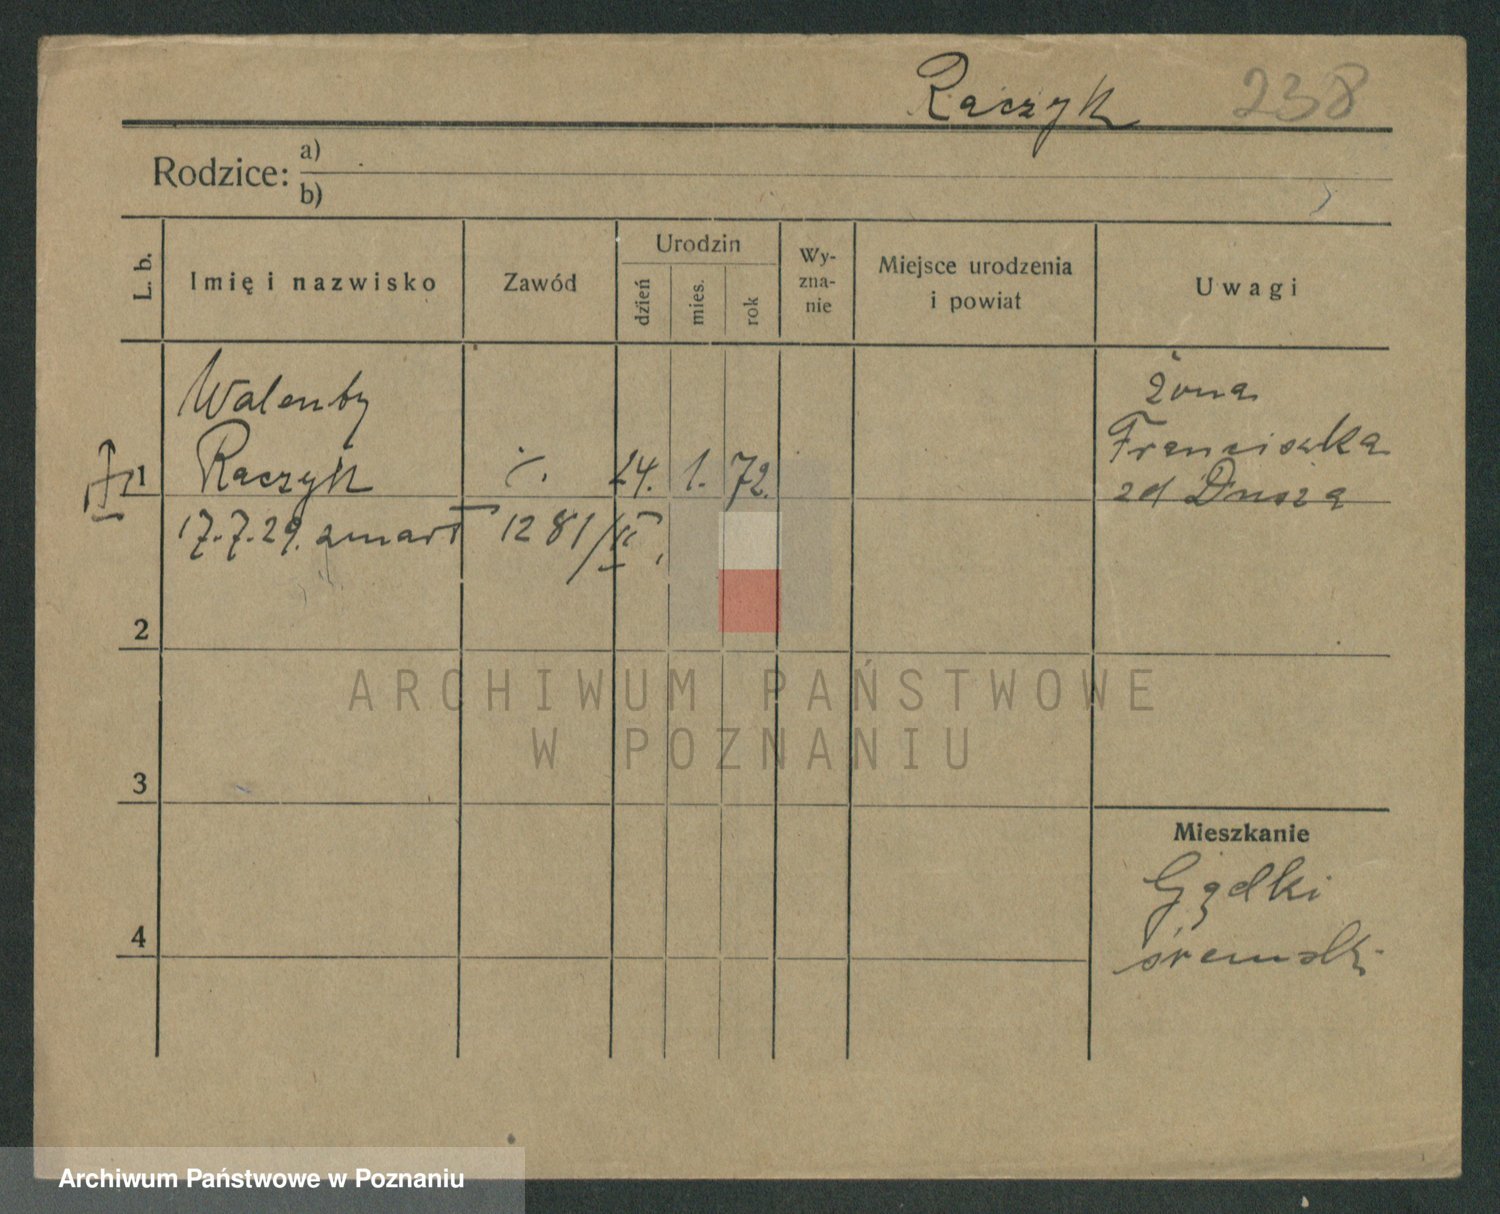 Raczyk 238
Rodzice: a)
b)
L. b. Imię i nazwisko Zawód Urodzin dzień mies. rok Wy-zna-nie Miejsce urodzenia i powiat Uwagi
1 Walenty Raczyk ·/. 24. 1. 72. żona Franciszka zd Dusza
17.7.29. zmarł 1281/II.
2
3
4
Mieszkanie
Gądki
śremski
ARCHIWUM PAŃSTWOWE
W POZNANIU
Archiwum Państwowe w Poznaniu